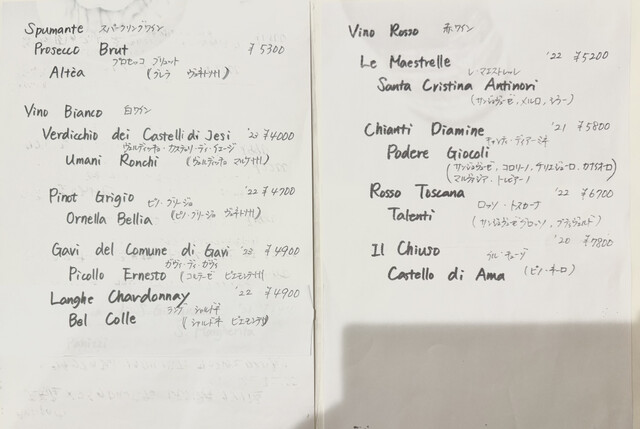 Spumante スパークリングワイン
Prosecco Brut ¥5300
プロセッコ ブリュット
Altèa (グレラ ヴェネト州)
Vino Bianco 白ワイン
Verdicchio dei Castelli di Jesi '23 ¥4000
ヴェルディッキオ・カステッリ・ディ・イエージ
Umani Ronchi (ヴェルディッキオ マルケ州)
Pinot Grigio '22 ¥4700
ピノ・グリージョ
Ornella Bellia (ピノ・グリージョ ヴェネト州)
Gavi del Comune di Gavi '23 ¥4900
ガヴィ・ディ・ガヴィ
Picollo Ernesto (コルテーゼ ピエモンテ州)
Langhe Chardonnay '22 ¥4900
ランゲ シャルドネ
Bel Colle (シャルドネ ピエモンテ州)
Vino Rosso 赤ワイン
Le Maestrelle '22 ¥5200
レ・マエストレッレ
Santa Cristina Antinori
(サンジョヴェーゼ、メルロ、シラー)
Chianti Diamine '21 ¥5800
キャンティ・ディアーミネ
Podere Giocoli
(サンジョヴェーゼ、コロリーノ、チリエジョーロ、カナイオーロ
マルヴァジア、トレビアーノ)
Rosso Toscana '22 ¥6700
ロッソ・トスカーナ
Talenti (サンジョヴェーゼグロッソ、プティヴェルド)
Il Chiuso '20 ¥7800
イル・キューゾ
Castello di Ama (ピノ・ネーロ)